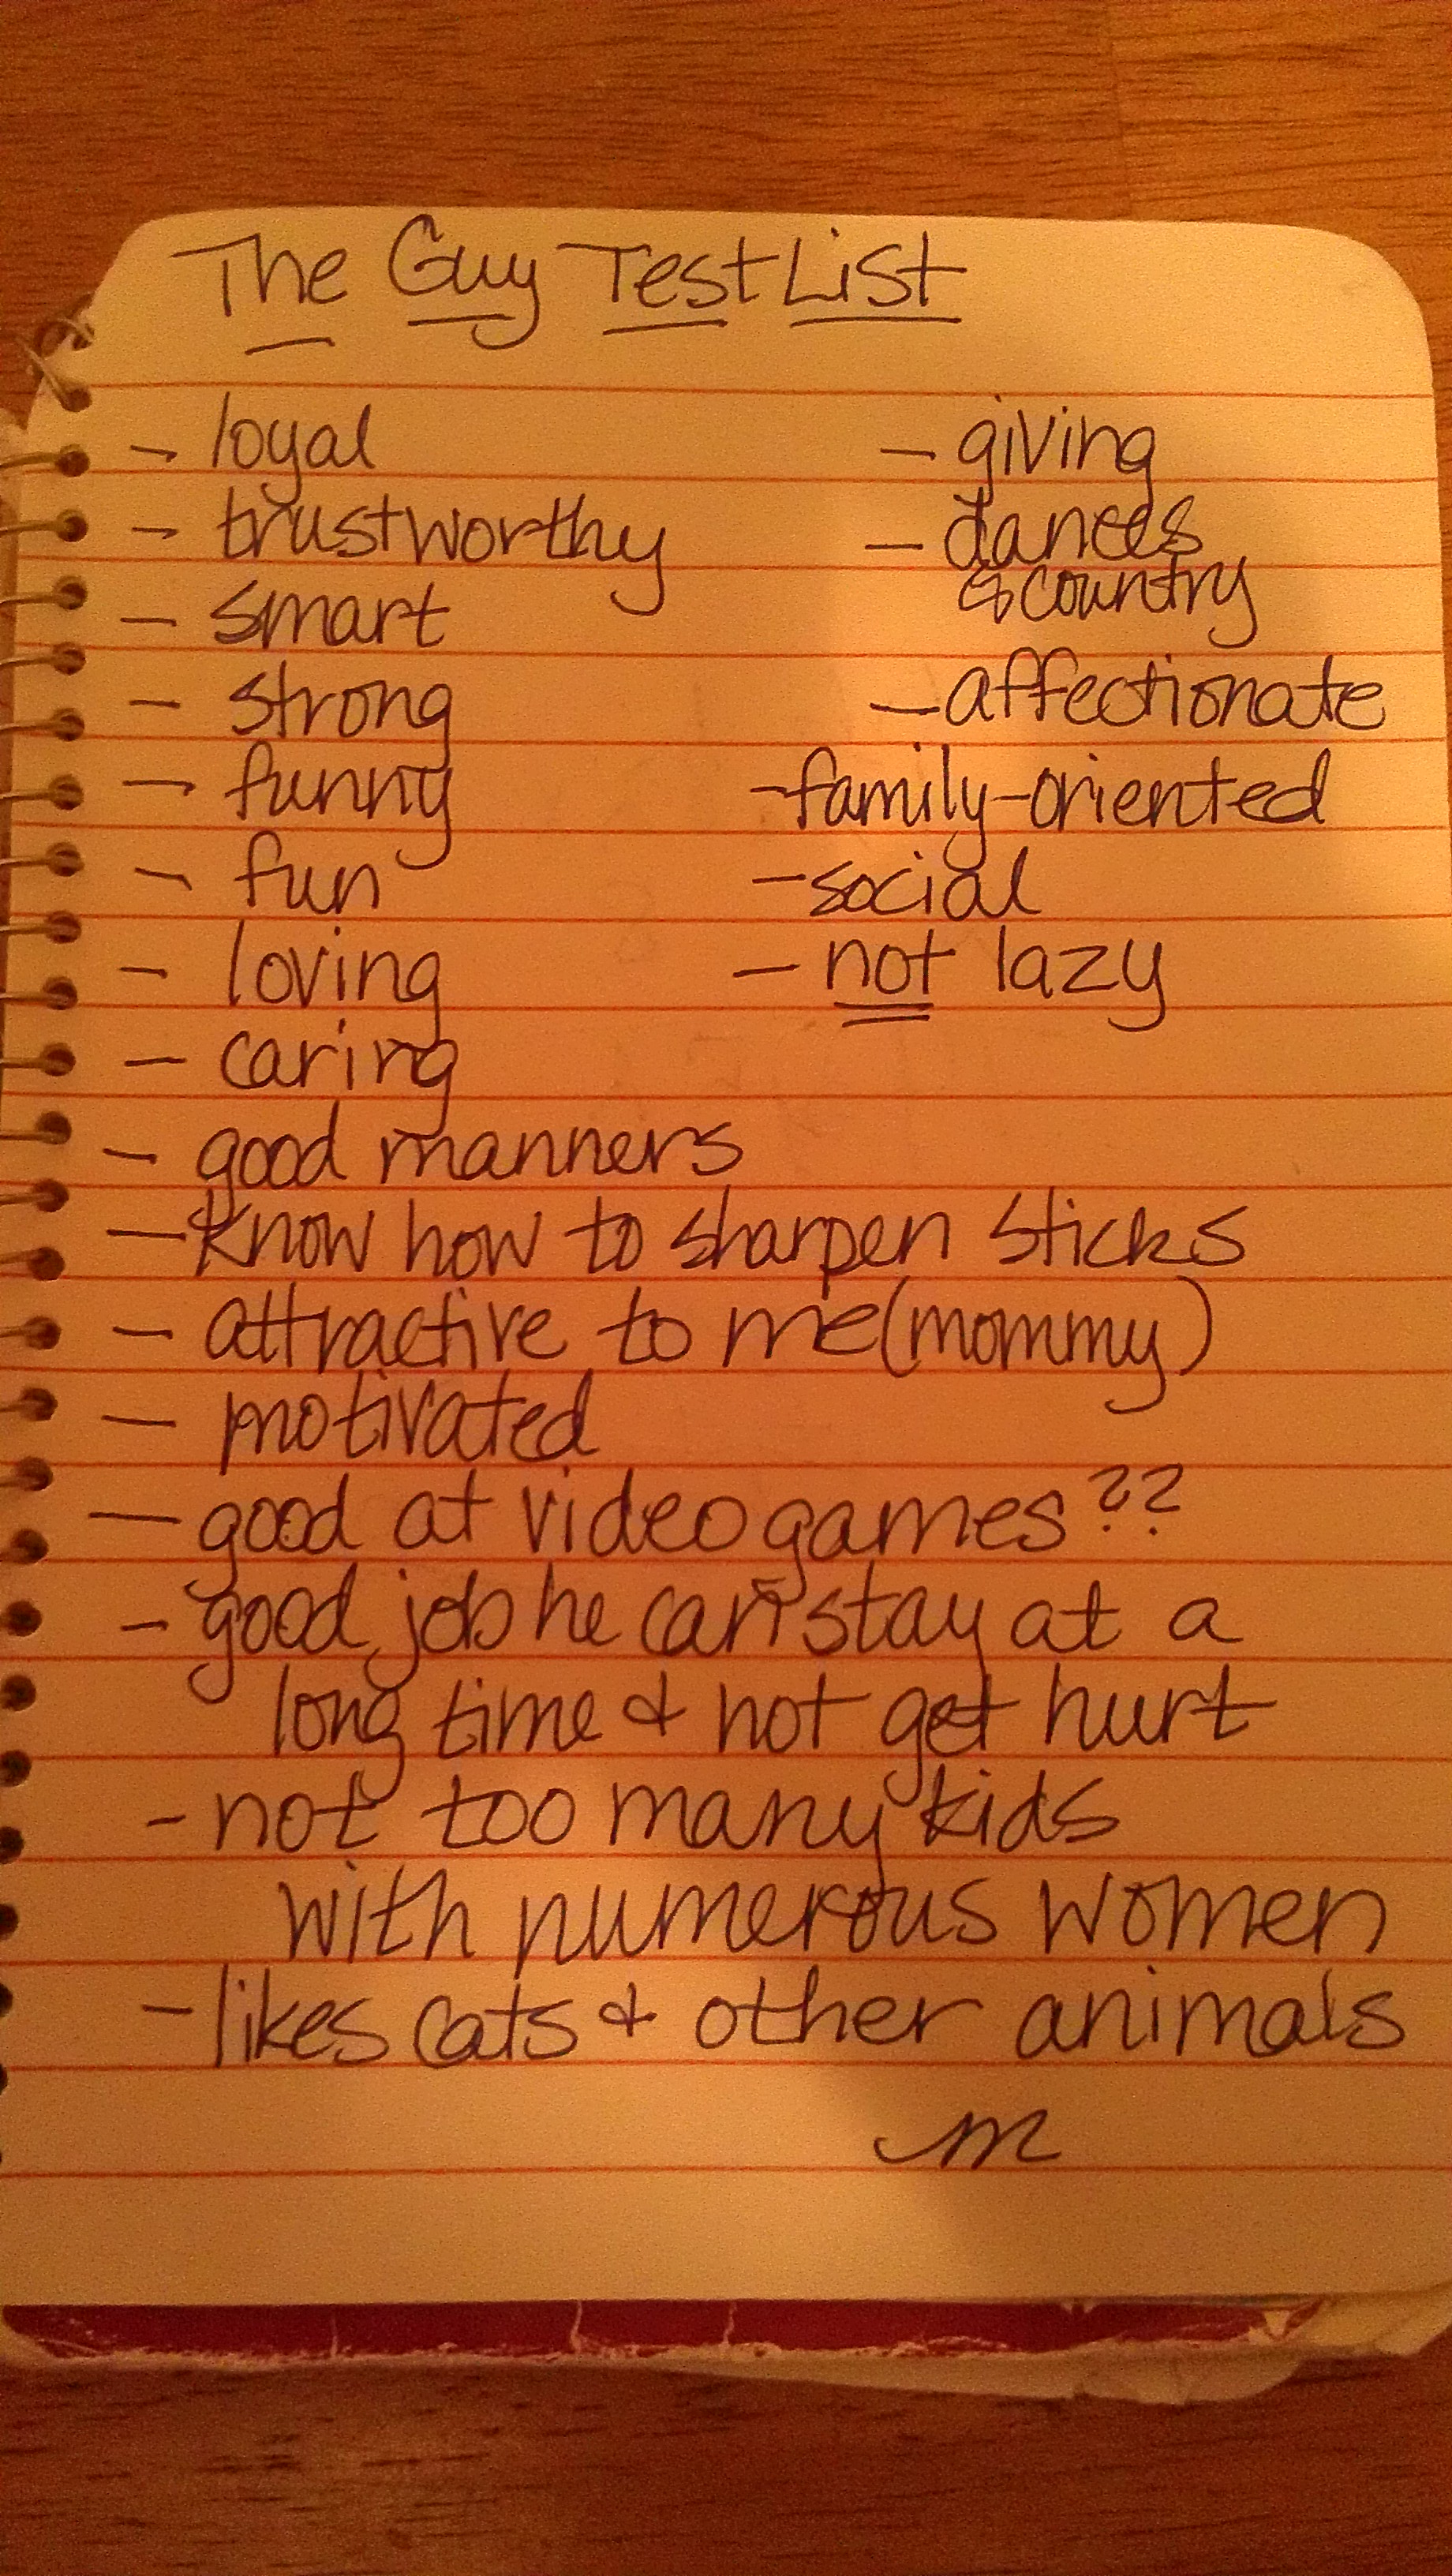 The Guy Test List
- loyal
- trustworthy
- smart
- strong
- funny
- fun
- loving
- caring
- good manners
- know how to sharpen sticks
- attractive to me (mommy)
- motivated
- good at video games??
- good job he can stay at a
long time & not get hurt
- not too many kids
with numerous women
- likes cats & other animals
- giving
- dances
& country
- affectionate
- family-oriented
- social
- not lazy